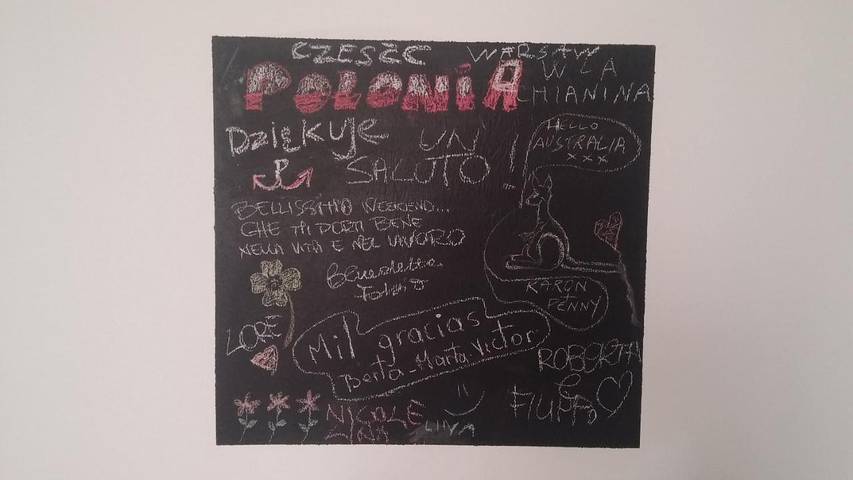 CZEŚĆ WARSAW
POLONIA
W LA
CHIANINA
DZIĘKUJE
UN
SALUTO !
HELLO
AUSTRALIA
xxx
BELLISSIMO WEEKEND...
CHE TI PORTI BENE
NELLA VITA E NEL LAVORO
Benedetta
Fabio
KARON
+
PENNY
LORE
Mil gracias
Berta-Marta-Victor
ROBERTA
&
FILIPPO
NICOLE
LINA
LUNA